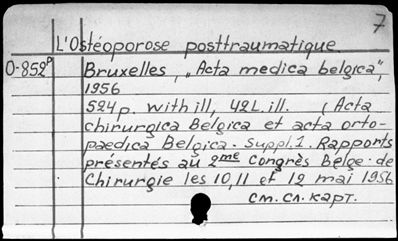 7
L'Ostéoporose posttraumatique
O-852р Bruxelles, „Acta medica belgica",
1956
524p. with ill, 42L. ill. (Acta
chirurgica Belgica et acta orto-
paedica Belgica. Suppl.1. Rapports
présentés au 2me Congrès Belge de
Chirurgie les 10,11 et 12 mai 1956
см. сл. карт.